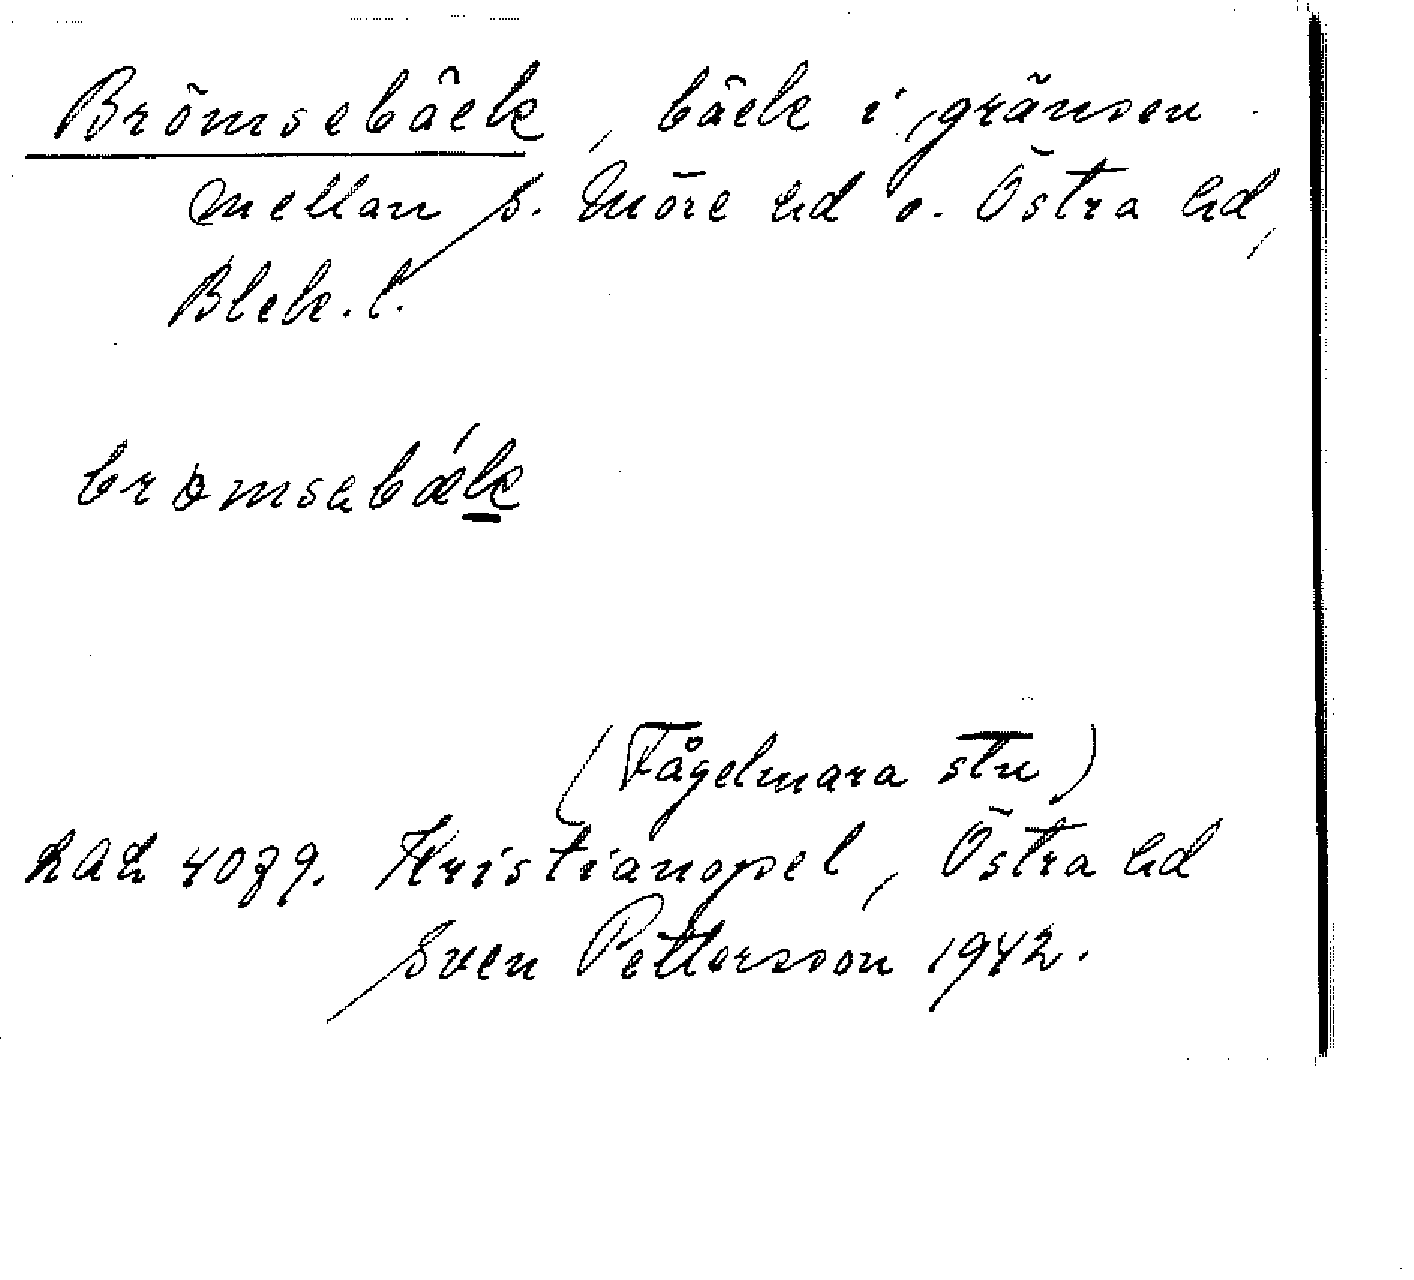 Brömsebäck, bäck i gränsen
mellan S. Möre hd o. Östra hd,
Blek. l.
brømsəbǽk
(Fågelmara stn)
LAL 4079. Kristianopel, Östra hd
Sven Pettersson 1942.